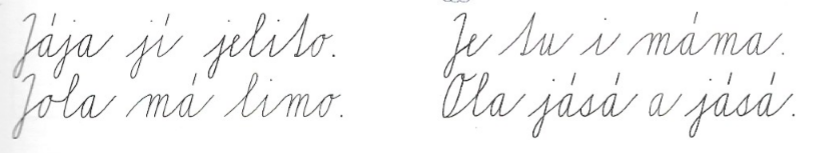 Jája jí jelito.
Jola má limo.
Je tu i máma.
Ola jásá a jásá.